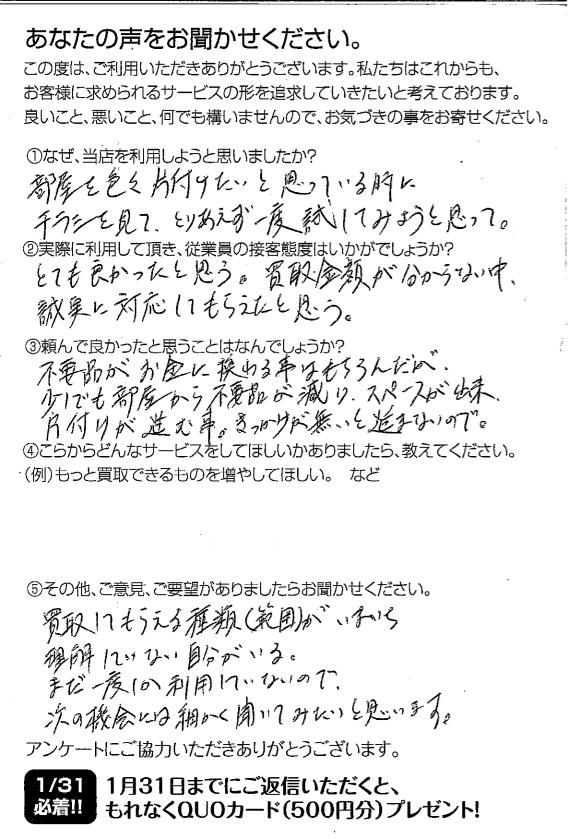 あなたの声をお聞かせください。
この度は、ご利用いただきありがとうございます。私たちはこれからも、
お客様に求められるサービスの形を追求していきたいと考えております。
良いこと、悪いこと、何でも構いませんので、お気づきの事をお寄せください。
①なぜ、当店を利用しようと思いましたか?
部屋を色々片付けたいと思っている時に
チラシを見て、とりあえず一度試してみようと思って。
②実際に利用して頂き、従業員の接客態度はいかがでしょうか?
とても良かったと思う。買取金額が分からない中、
誠実に対応してもらえたと思う。
③頼んで良かったと思うことはなんでしょうか?
不要品がお金に換わる事はもちろんだが、
少しでも部屋から不要品が減り、スペースが出来、
片付けが進む事。きっかけが無いと進まないので。
④こらからどんなサービスをしてほしいかありましたら、教えてください。
(例)もっと買取できるものを増やしてほしい。 など
⑤その他、ご意見、ご要望がありましたらお聞かせください。
買取してもらえる種類(範囲)がいまいち
理解していない自分がいる。
まだ一度しか利用していないので、
次の機会には細かく聞いてみたいと思います。
アンケートにご協力いただきありがとうございます。
1/31 1月31日までにご返信いただくと、
必着!! もれなくQUOカード(500円分)プレゼント!